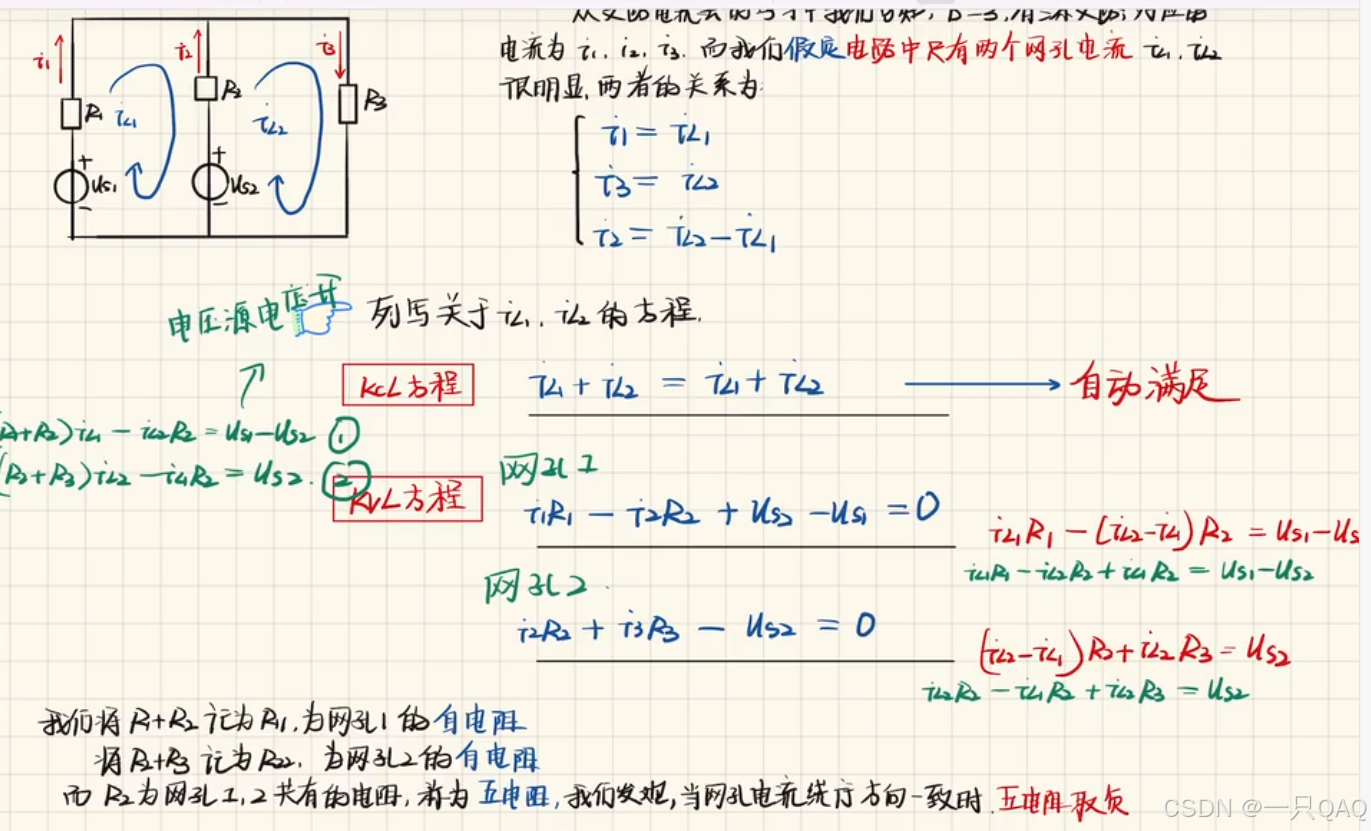 电流为 i1, i2, i3. 而我们假定电路中只有两个网孔电流 iL1, iL2
很明显,两者的关系为:
i1
R1
iL1
+
US1
-
i2
R2
iL2
+
US2
-
i3
R3
i1 = iL1
i3 = iL2
i2 = iL2-iL1
电压源电压升
列写关于 iL1, iL2 的方程.
KCL方程
iL1 + iL2 = iL1 + iL2
自动满足
R1+R2)iL1 - iL2R2 = US1-US2 ①
(R2+R3)iL2 - iL1R2 = US2. ②
KVL方程
网孔1
i1R1 - i2R2 + US2 - US1 = 0
iL1R1 - (iL2-iL1)R2 = US1-US
iL1R1 - iL2R2 + iL1R2 = US1-US2
网孔2.
i2R2 + i3R3 - US2 = 0
(iL2-iL1)R2 + iL2R3 = US2
iL2R2 - iL1R2 + iL2R3 = US2
我们将 R1+R2 记为 R11,为网孔1的自电阻
将 R2+R3 记为 R22, 为网孔2的自电阻
而 R2为网孔1,2共有的电阻,称为互电阻,我们发现,当网孔电流绕行方向一致时.互电阻取负
CSDN @一只QAQ